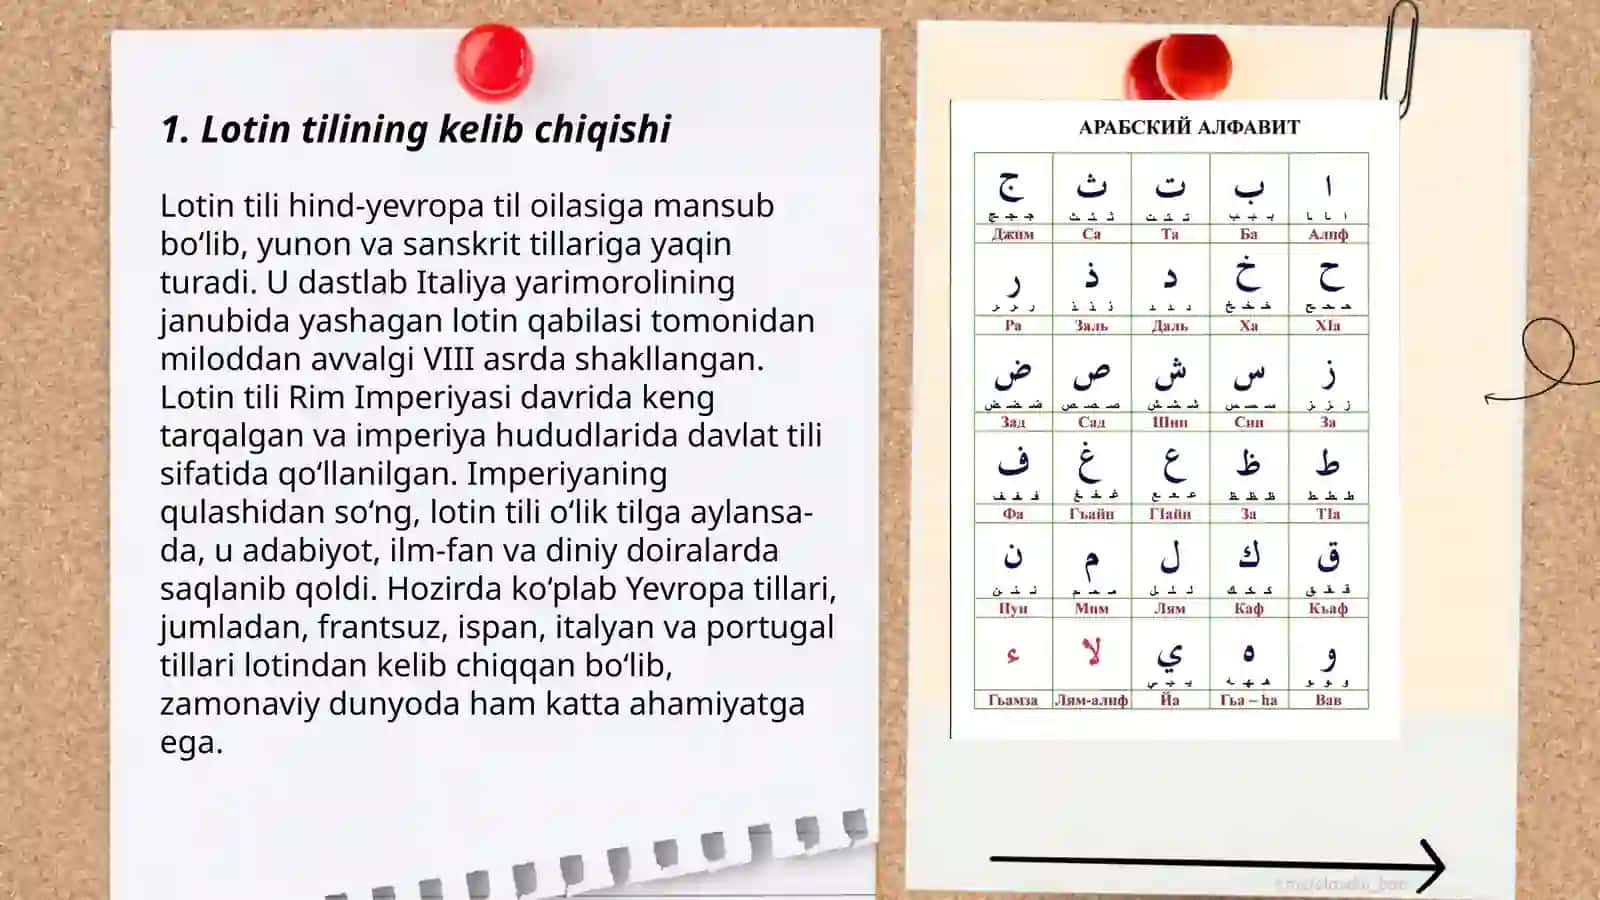 1. Lotin tilining kelib chiqishi
Lotin tili hind-yevropa til oilasiga mansub
bo‘lib, yunon va sanskrit tillariga yaqin
turadi. U dastlab Italiya yarimorolining
janubida yashagan lotin qabilasi tomonidan
miloddan avvalgi VIII asrda shakllangan.
Lotin tili Rim Imperiyasi davrida keng
tarqalgan va imperiya hududlarida davlat tili
sifatida qo‘llanilgan. Imperiyaning
qulashidan so‘ng, lotin tili o‘lik tilga aylansa-
da, u adabiyot, ilm-fan va diniy doiralarda
saqlanib qoldi. Hozirda ko‘plab Yevropa tillari,
jumladan, frantsuz, ispan, italyan va portugal
tillari lotindan kelib chiqqan bo‘lib,
zamonaviy dunyoda ham katta ahamiyatga
ega.
АРАБСКИЙ АЛФАВИТ
ج ث ت ب ا
Джим Са Та Ба Алиф
ر ذ د خ ح
Ра Заль Даль Ха XIa
ض ص ش س ز
Зад Сад Шин Син За
ف غ ع ظ ط
Фа Гъайн ГIайн За TIa
ن م ل ك ق
Нун Мим Лям Каф Къаф
ء لا ي ه و
Гьамза Лям-алиф Йа Гьа – ha Вав